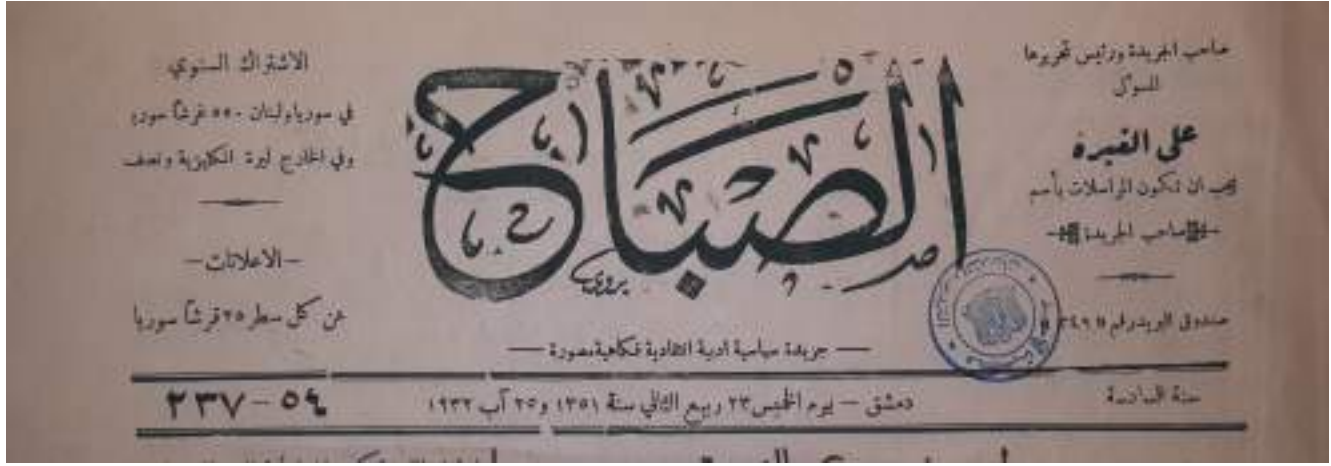 صاحب الجريدة ورئيس تحريرها
المسؤل
علي الغبرة
يجب ان تكون المراسلات بأسم
صاحب الجريدة
صندوق البريد رقم
الصباح
جريدة سياسية أدبية انتقادية فكاهية مصورة
الاشتراك السنوي
في سوريا ولبنان ٥٥٠ غرشاً سوريا
وفي الخارج ليرة انكليزية ونصف
—الاعلانات—
عن كل سطر ٢٥ قرشاً سوريا
سنة السادسة
دمشق — يوم الخميس ٢٣ ربيع الثاني سنة ١٣٥١ و ٢٥ آب ١٩٣٢
٥٤ – ٢٣٧